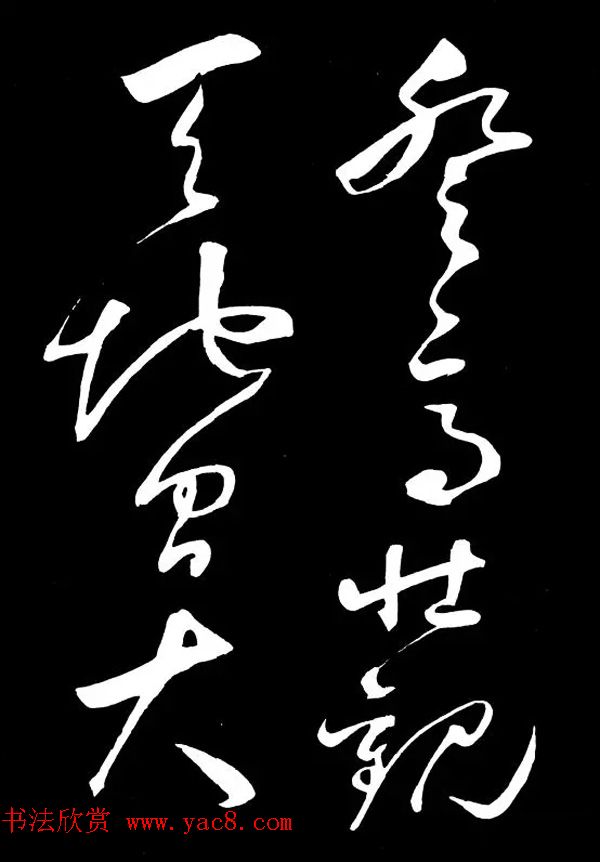 登高壯觀
天地間大
书法欣赏 www.yac8.com